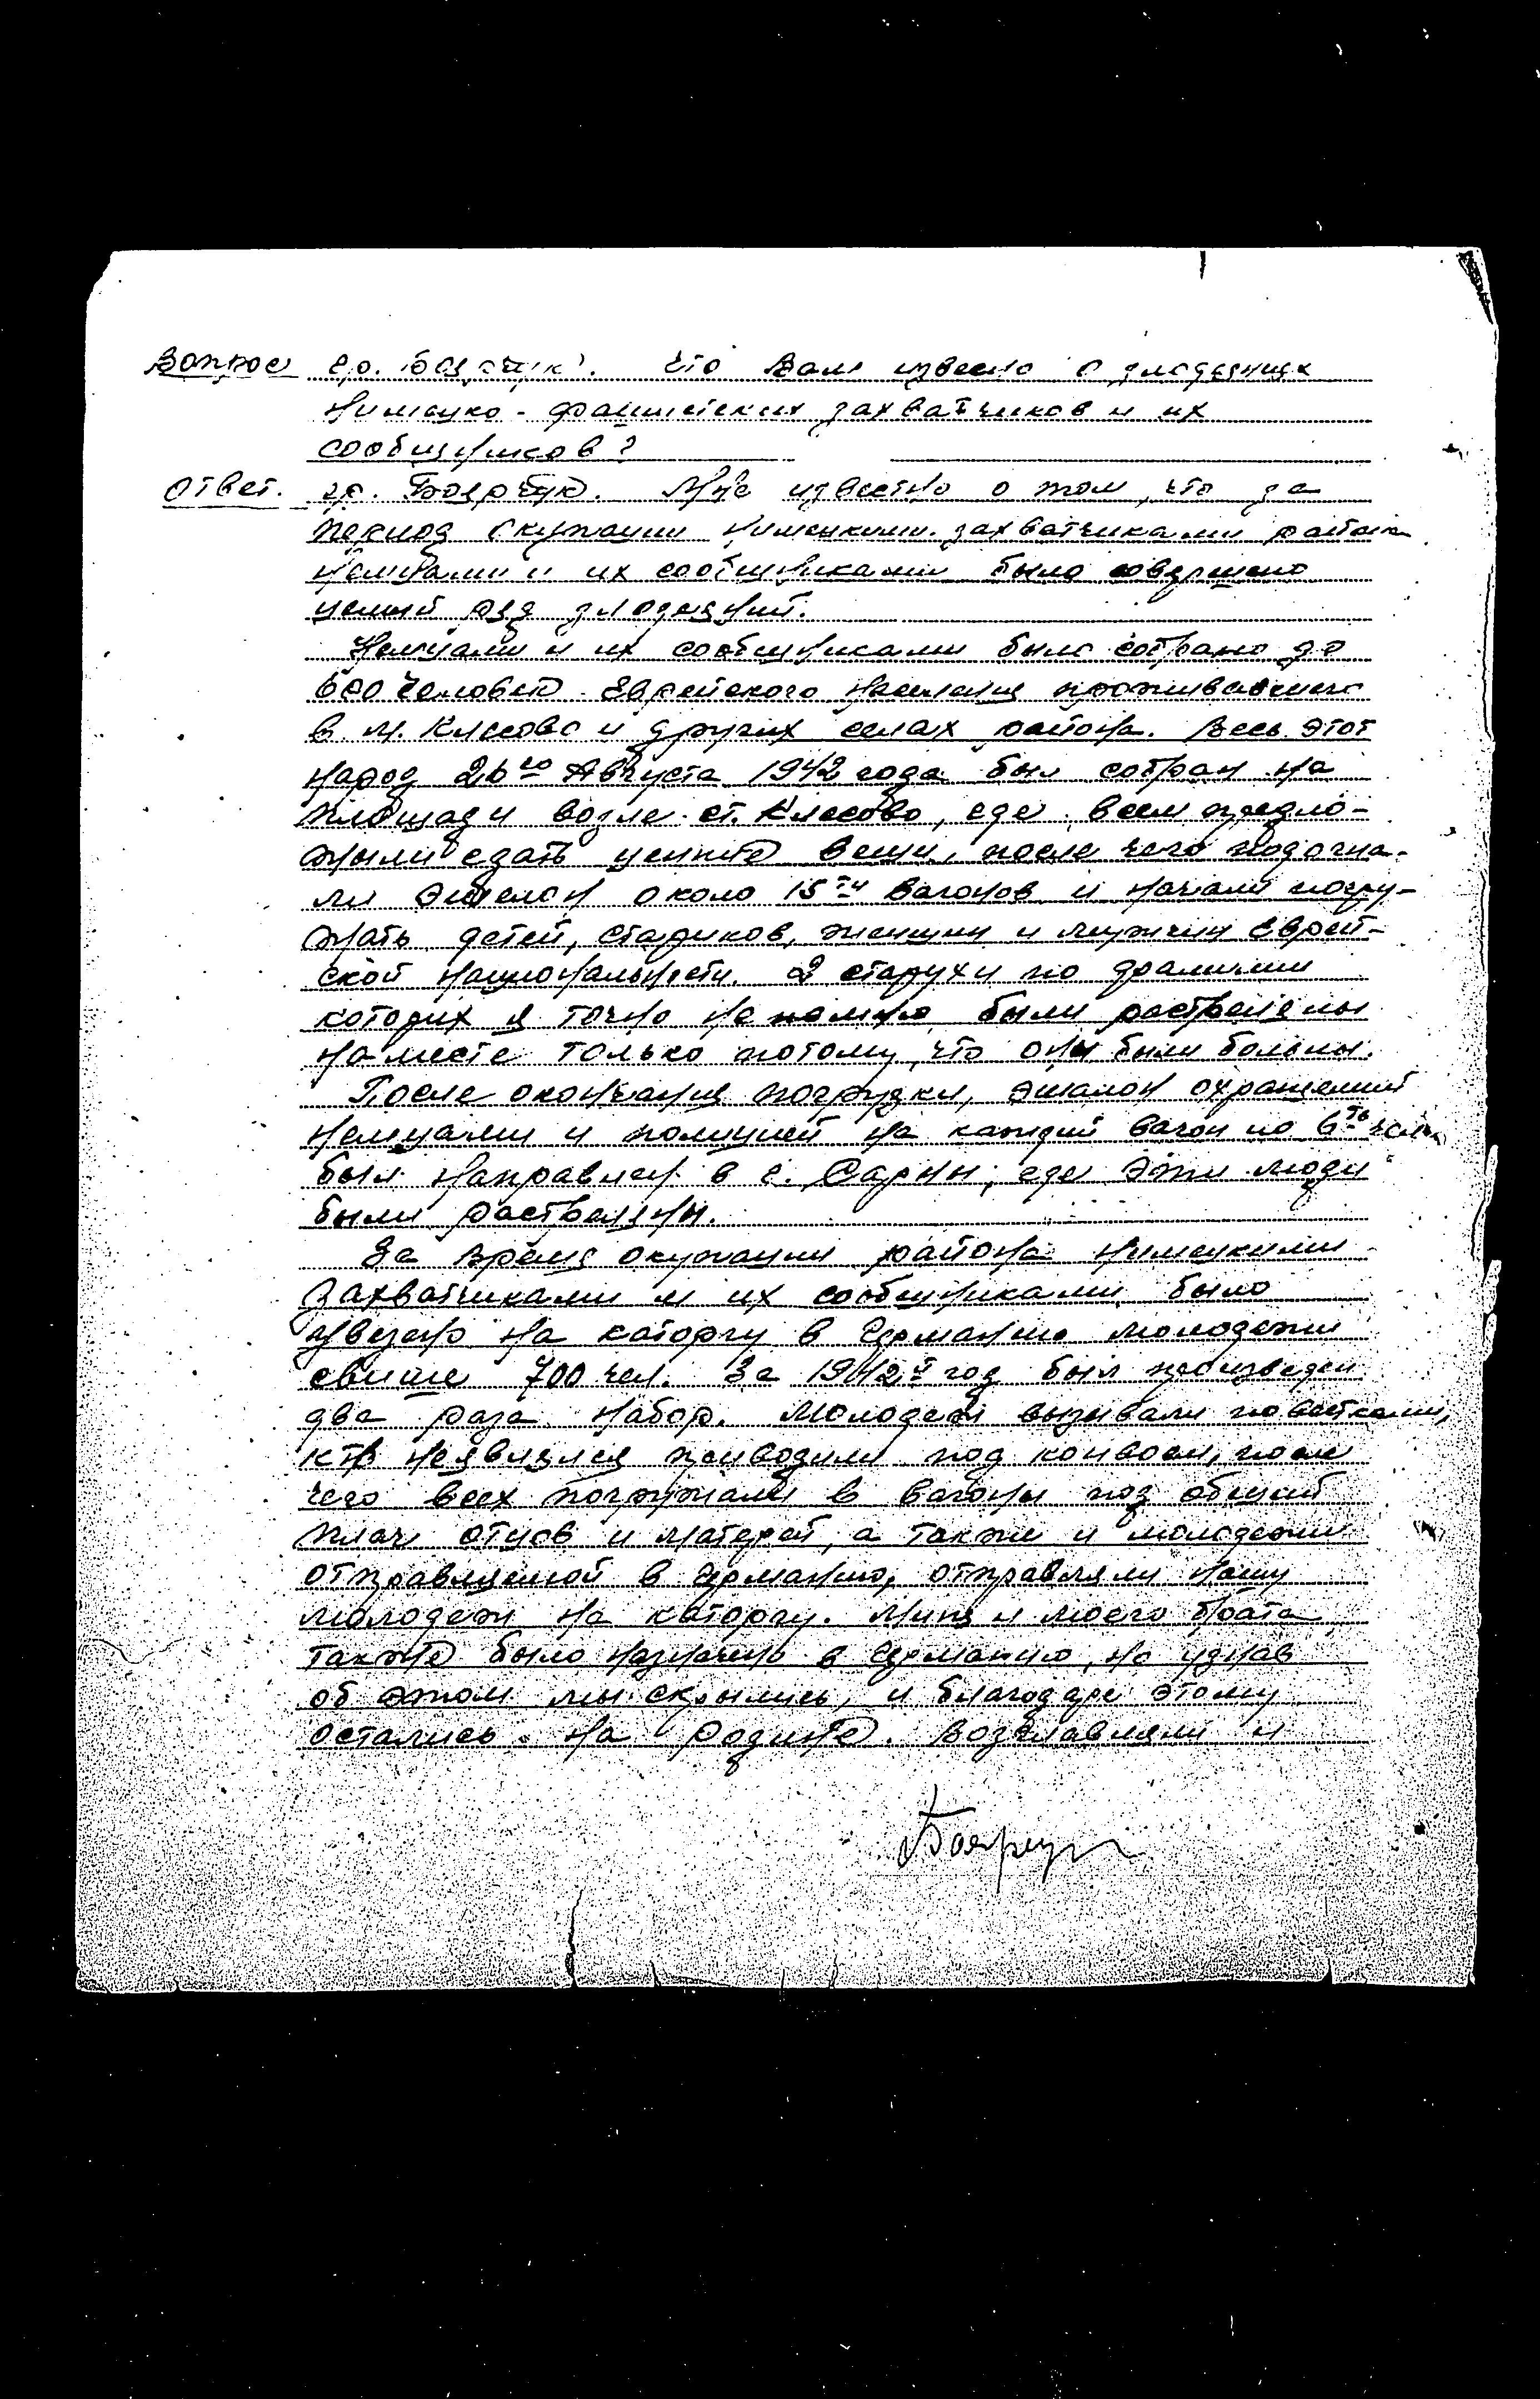 Вопрос гр. Боярчук. Что Вам извесно о злодеяниях
Нимецко-фашистских захватчиков и их
сообщников?
Ответ. гр. Боярчук. Мне известно о том, что за
период окупации нимецкими захватчиками района
немцами и их сообщниками было совершено
целый ряд злодеяний.
Немцами и их сообщниками было собрано до
человек Еврейского населения проживавшего
в м. Клесово и других селах района. Весь этот
народ 26го Августа 1942 года был собран на
площади возле ст. Клесово, где всем предло-
жыли сдать ценные вещи, после чего подогна-
ли эшелон около 15ти вагонов и начали погру-
жать детей, стариков, женщин и мужчин Еврей-
ской национальности. 2 старухи по фамилии
которих я точно не помню были растреляны
на месте только потому, что они были больны.
После окончания погрузки, эшалон охраненний
немцами и полицией на каждий вагон по 6ть чел.
был направлен в г. Сарны, где эти люди
были растреляны.
За время окупации района нимецкими
захватчиками и их сообщниками было
увезено на каторгу в Германию молодежи
свише 700 чел. За 1942й год был произведен
два раза набор. Молодежь вызывали повестками,
кто неявлялся приводили под конвоем, после
чего всех погружали в вагоны под общий
плач отцов и матерей, а также и молодежи
отправляемой в Германию, отправляли нашу
молодежь на каторгу. Миня и моего брата
также было назначено в Германию, но узнав
об этом мы скрылись, и благодаря этому
остались на Родине. Возглавляли и
Боярчук